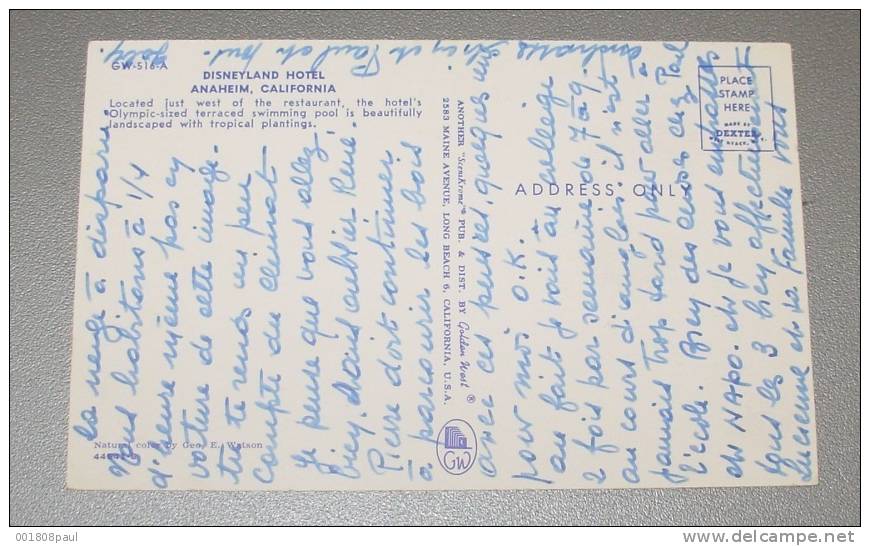 GW-516-A
DISNEYLAND HOTEL
ANAHEIM, CALIFORNIA
Located just west of the restaurant, the hotel's
Olympic-sized terraced swimming pool is beautifully
landscaped with tropical plantings.
la neige à disparu.
Nous habitons à 1/4
d'heure même pas cy
voiture de cette image.
tu te rends un peu
compte du climat
Je pense que vous allez
bien, sans oublier René.
Pierre doit continuer
à parcourir les bois
avec ces pensées, quelques une
pour moi O.K.
au fait je vais au collège
2 fois par semaine de 7 à 9.
au cours d'anglais. il n'est
jamais trop tard pour aller à
l'école. Bien des choses chez Paul
et NAPO. et je vous embrasse
tous les 3 bien affectueusement
Lucienne et sa Famille vous
embrasse
et Paul
Natural color by Geo. E. Watson
ANOTHER "Scenkrome"® PUB. & DIST. BY Golden West ®
2583 MAINE AVENUE, LONG BEACH 6, CALIFORNIA, U.S.A.
GW
ADDRESS ONLY
PLACE
STAMP
HERE
MADE BY
DEXTER
001808paul
www.delcampe.net